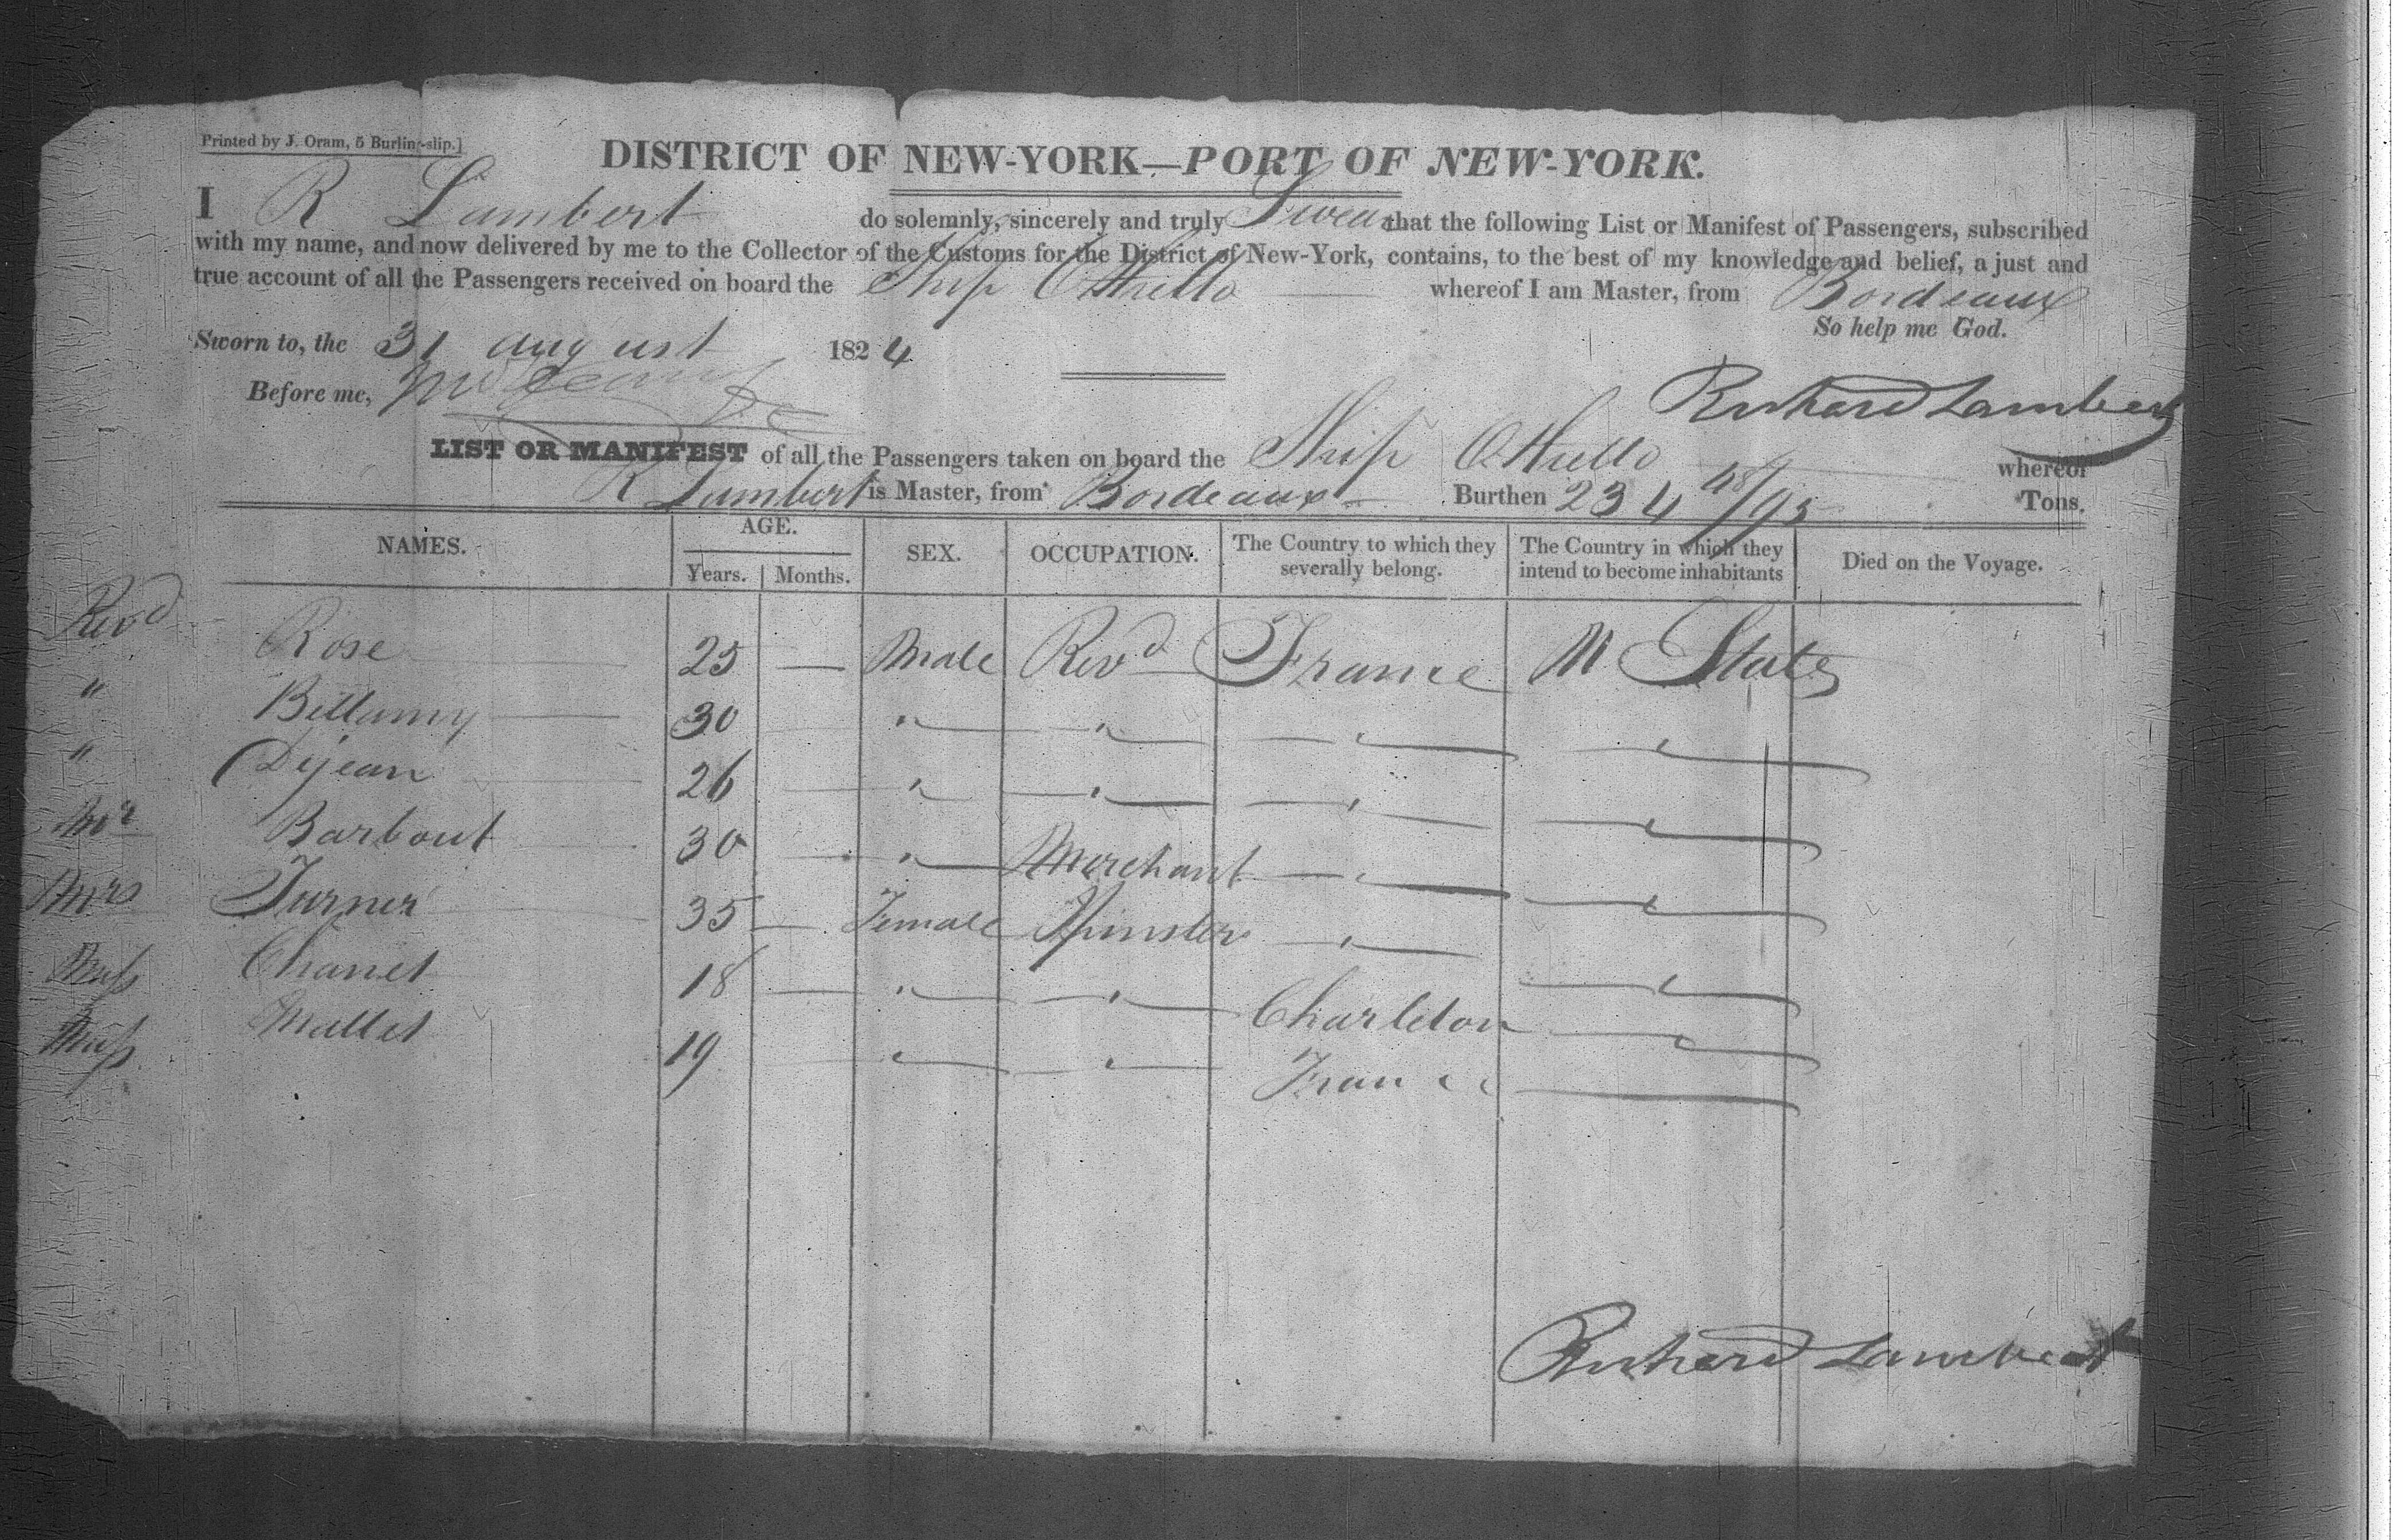 Printed by J. Oram, 5 Burling-slip.]
DISTRICT OF NEW-YORK—PORT OF NEW-YORK.
I R Lambert do solemnly, sincerely and truly Swear that the following List or Manifest of Passengers, subscribed
with my name, and now delivered by me to the Collector of the Customs for the District of New-York, contains, to the best of my knowledge and belief, a just and
true account of all the Passengers received on board the Ship Othello whereof I am Master, from Bordeaux
So help me God.
Sworn to, the 31 august 1824
Before me,
Richard Lambert
LIST OR MANIFEST of all the Passengers taken on board the Ship Othello whereof
R Lambert is Master, from Bordeaux Burthen 234 48/95 Tons.
NAMES. AGE. SEX. OCCUPATION. The Country to which they severally belong. The Country in which they intend to become inhabitants Died on the Voyage.
Years. Months.
Revd Rose 25 — Male Revd France States
" Bellamy 30 " " " "
" Dejean 26 " " " "
Mr Barbout 30 " Merchant " "
Mrs Turner 35 — Female Spinster " "
Miss Chanet 18 " " Charleton "
Miss Mallet 19 " " France
Richard Lambert